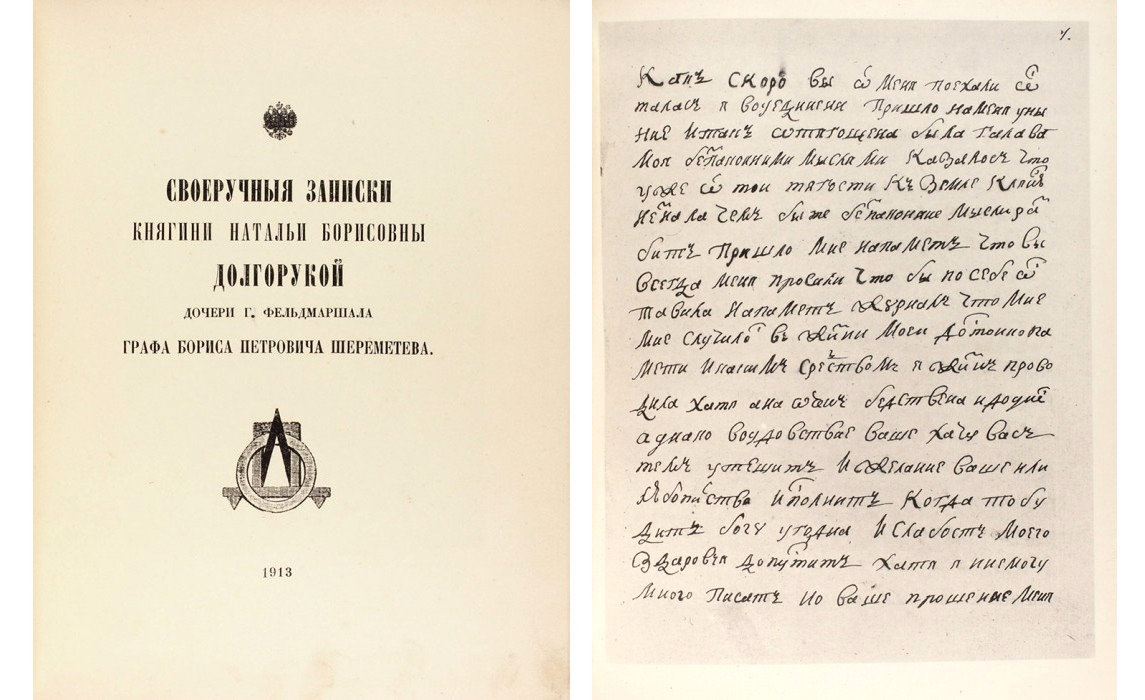 СВОЕРУЧНЫЯ ЗАПИСКИ
КНЯГИНИ НАТАЛЬИ БОРИСОВНЫ
ДОЛГОРУКОЙ
ДОЧЕРИ Г. ФЕЛЬДМАРШАЛА
ГРАФА БОРИСА ПЕТРОВИЧА ШЕРЕМЕТЕВА.
1913
1.
Какъ скоро вы ѿ меня поехали ѿс
талась я воуединени пришло наменя уны
ние итакъ ѿтягощена была галава
моя беспаконними мыслями казалось что
уже ѿ тои тягости къ земле клонюсь
незнала чемъ бы же беспаконние мысли раз
бить пришло мне напаметь что вы
всегда меня просили что бы по себе ѿс
тавила напаметь журналъ что мне
мне случилос въ жизни моеи достоино па
мети икакимъ средствомъ я жизнь прово
дила хатя ана ѿчень бедствена идодне
аднако воудовствие ваше хачу васъ
темъ утешить и желание ваше или
любопытство исполнить когда это бу
дить богу угодна и слабость моего
здаровья допустить хатя я инемогу
много писать но ваше прошение меня